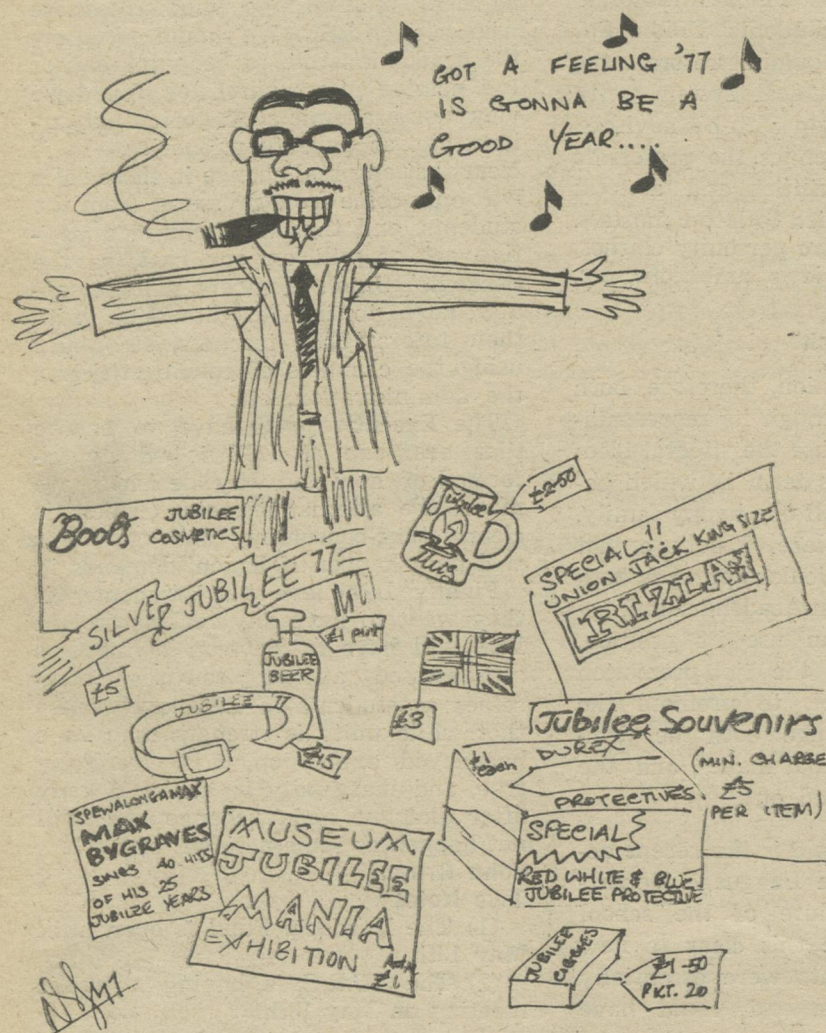 GOT A FEELING '77
IS GONNA BE A
GOOD YEAR....
Boots JUBILEE
COSMETICS
SILVER JUBILEE 77
£5
Jubilee
Mug
£2-50
SPECIAL!!
UNION JACK KING SIZE
RIZLA
£1 pint
JUBILEE
BEER
£3
JUBILEE 77
£15
Jubilee Souvenirs
(MIN. CHARGE
£5
PER ITEM)
£1
each
DUREX
PROTECTIVES
SPECIAL
RED WHITE & BLUE
JUBILEE PROTECTIVE
SPEWALONGAMAX
MAX
BYGRAVES
SINGS 40 HITS
OF HIS 25
JUBILEE YEARS
MUSEUM
JUBILEE
MANIA
EXHIBITION
Adm
£1
JUBILEE
£1-50
PKT. 20